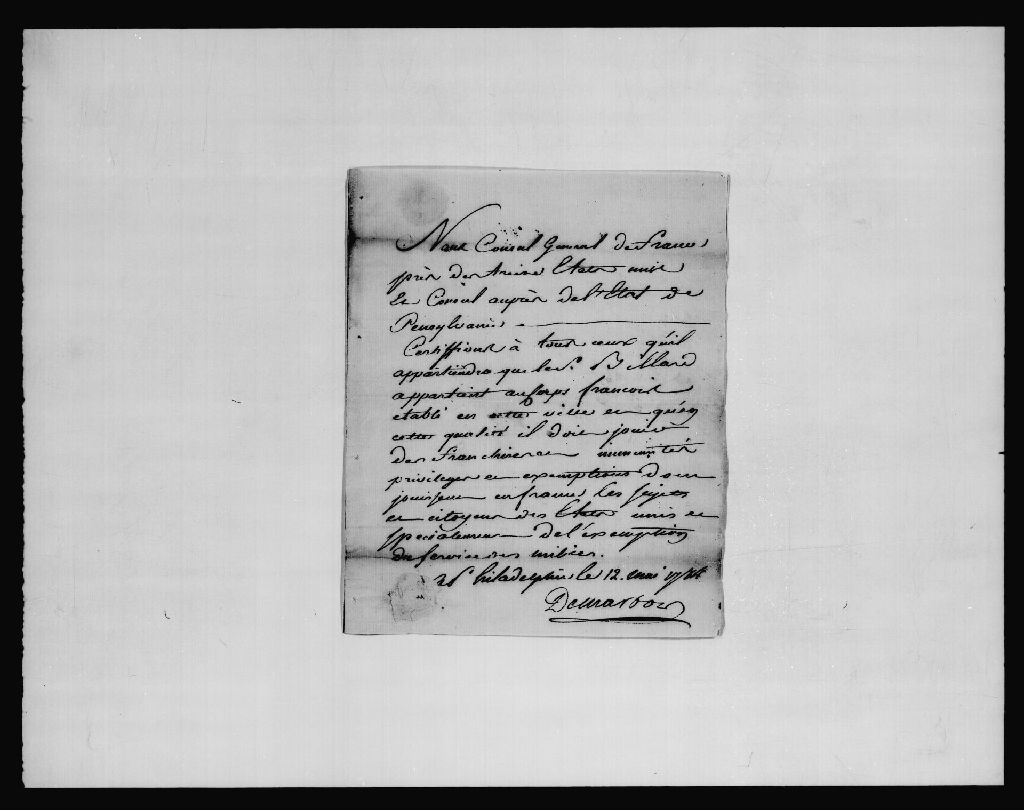 Nous Consul General de France
près des treize Etats unis
Et Consul auprès de l'Etat de
Pensylvanie
Certiffions à tous ceux qu'il
appartiendra que le Sr.
appartient au Corps francois
etabli en cette ville et qu'en
cette qualité il doit jouir
des Franchises et immunités
privileges et exemptions dont
jouissent en france les sujets
et citoyens des Etats unis et
specialement de l'exemption
du service des milices.
à Philadelphie le 12. mai